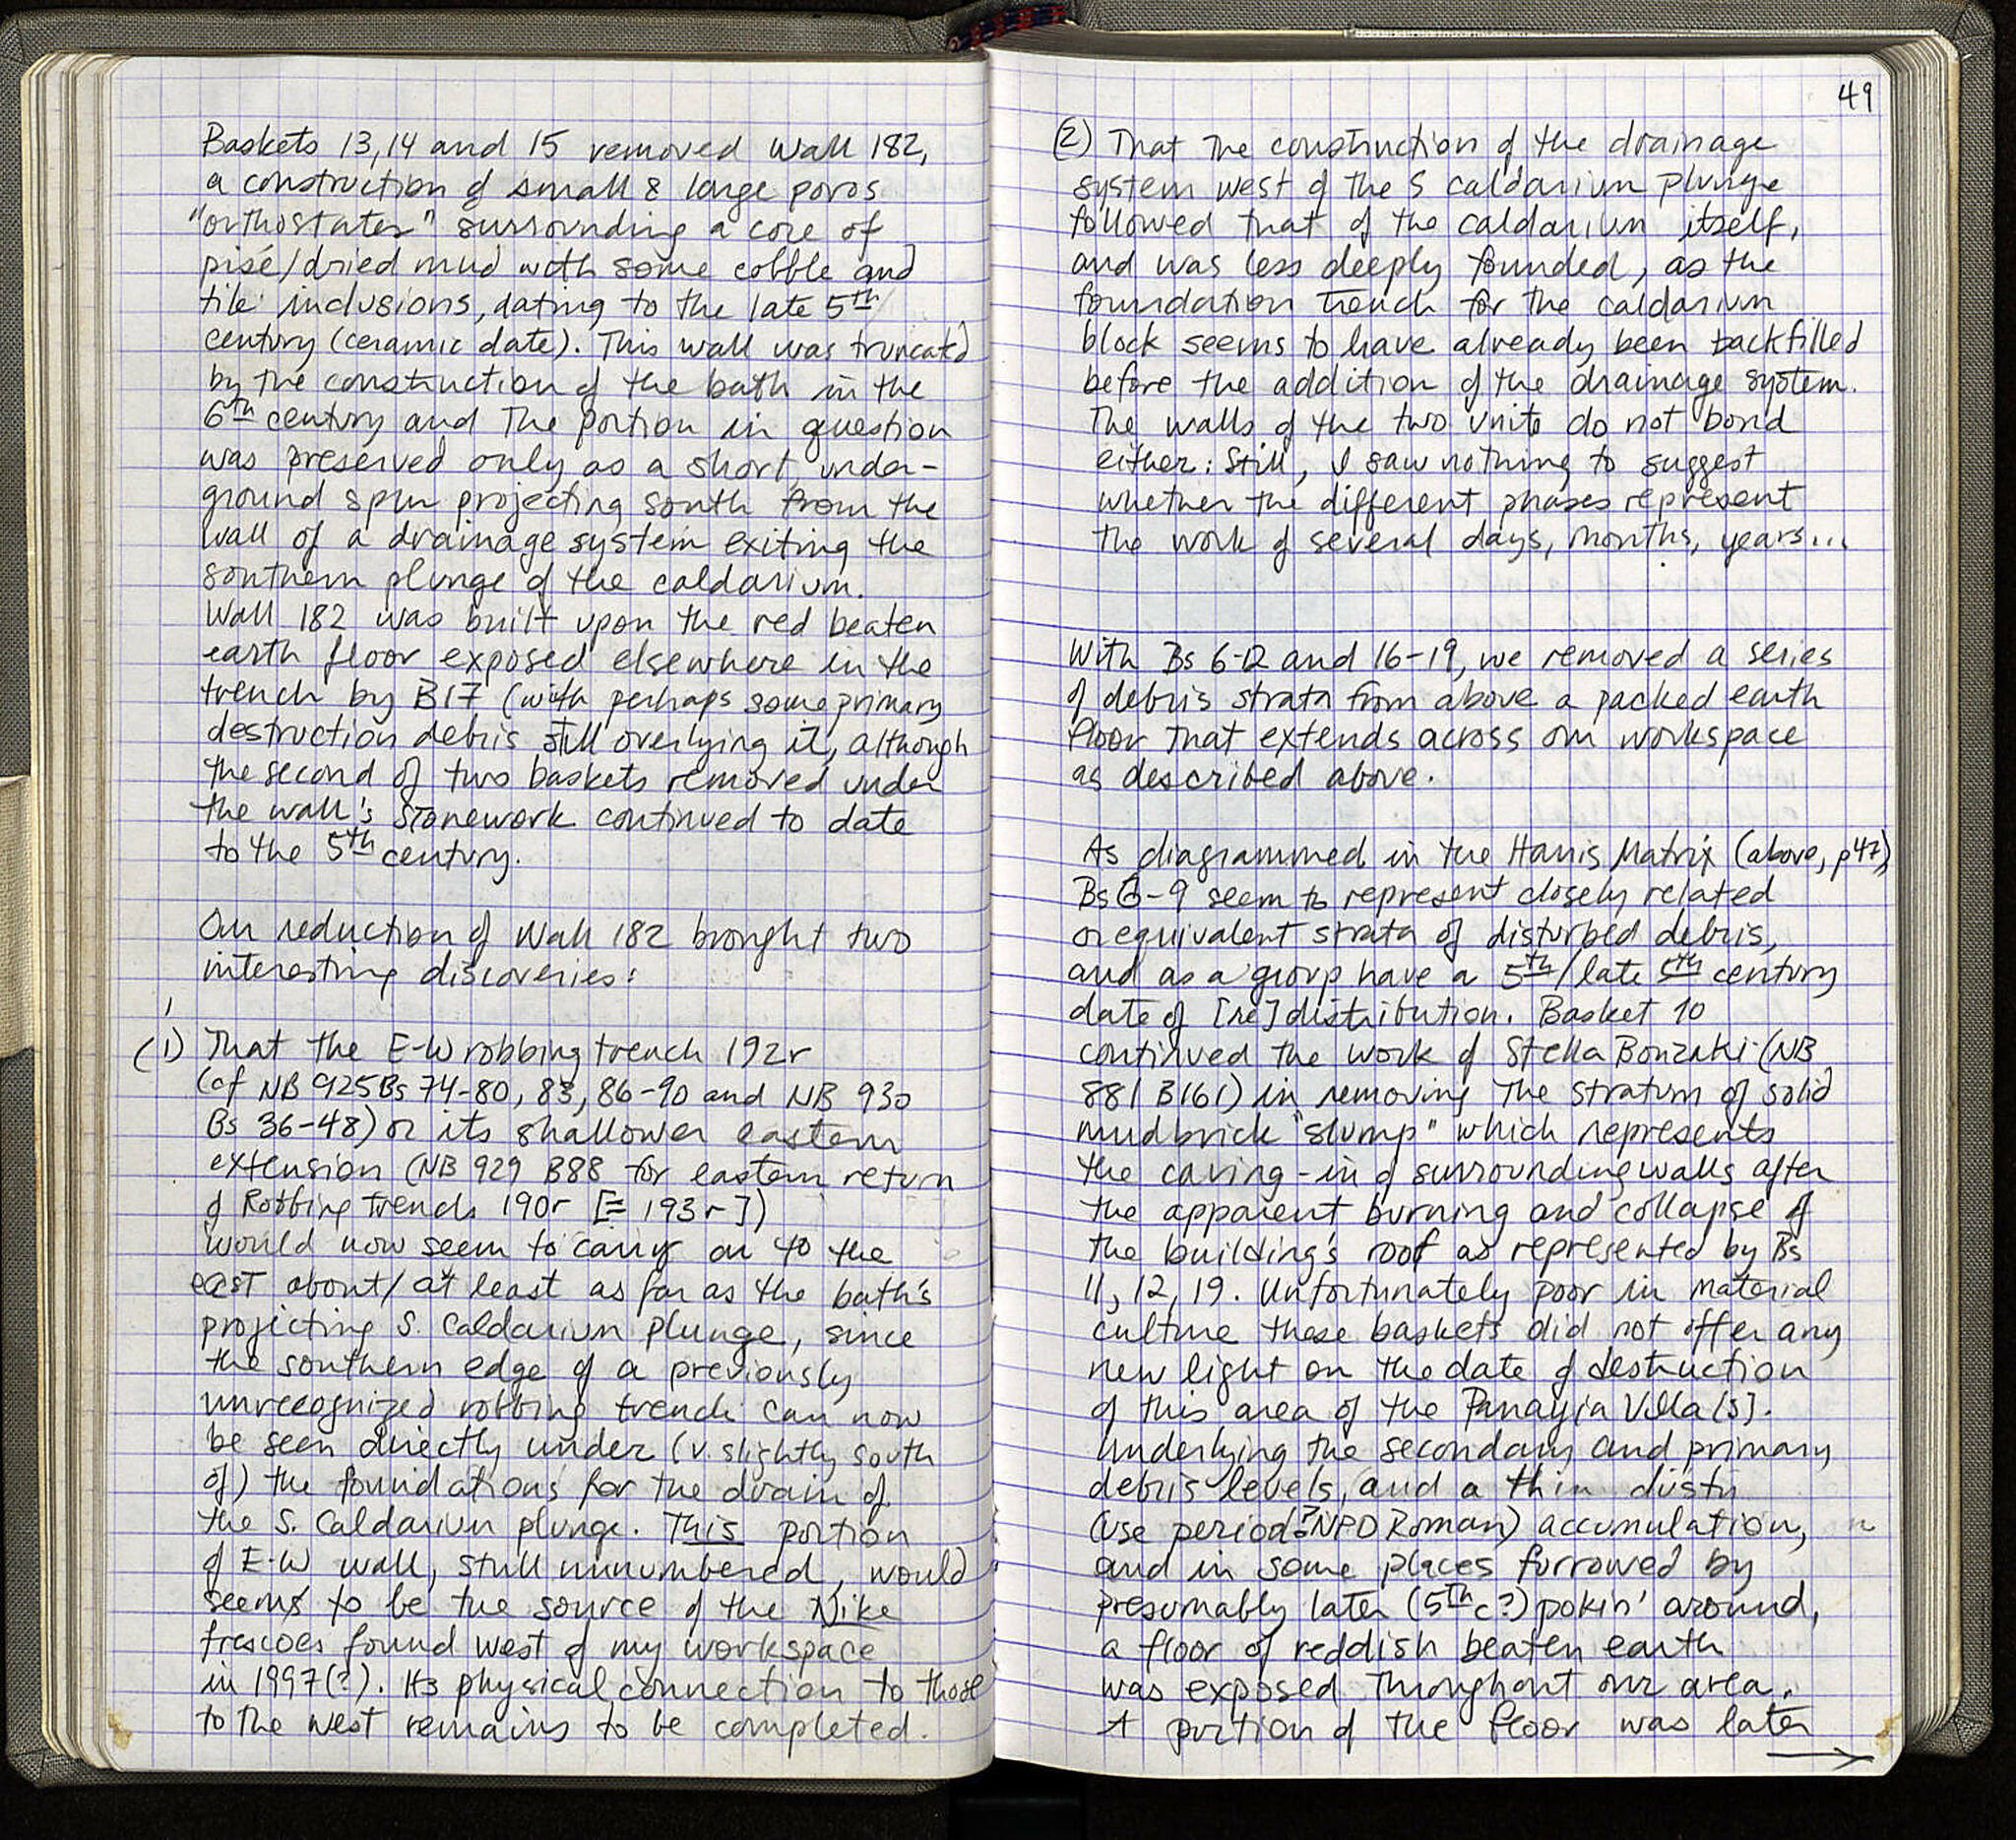 Baskets 13, 14 and 15 removed Wall 182,
a construction of small & large poros
"orthostates" surrounding a core of
pisé/dried mud with some cobble and
tile inclusions, dating to the late 5th
century (ceramic date). This wall was truncated
by the construction of the bath in the
6th century and the portion in question
was preserved only as a short, under-
ground spur projecting south from the
wall of a drainage system exiting the
southern plunge of the caldarium.
Wall 182 was built upon the red beaten
earth floor exposed elsewhere in the
trench by B17 (with perhaps some primary
destruction debris still overlying it, although
the second of two baskets removed under
the wall's stonework continued to date
to the 5th century.
Our reduction of Wall 182 brought two
interesting discoveries:
(1) That the E-W robbing trench 192r
(cf NB 925 Bs 74-80, 83, 86-90 and NB 930
Bs 36-48) or its shallower eastern
extension (NB 929 B88 for eastern return
of Robbing trench 190r [≡ 193r])
would now seem to carry on to the
east about/at least as far as the bath's
projecting S. Caldarium plunge, since
the southern edge of a previously
unrecognized robbing trench can now
be seen directly under (v. slightly south
of) the foundations for the drain of
the S. Caldarium plunge. This portion
of E-W wall, still unnumbered, would
seems to be the source of the Nike
frescoes found west of my workspace
in 1997(?). Its physical connection to those
to the west remains to be completed.
49
(2) That the construction of the drainage
system west of the S caldarium plunge
followed that of the caldarium itself,
and was less deeply founded, as the
foundation trench for the caldarium
block seems to have already been backfilled
before the addition of the drainage system.
The walls of the two units do not bond
either. Still, I saw nothing to suggest
whether the different phases represent
the work of several days, months, years...
With Bs 6-12 and 16-19, we removed a series
of debris strata from above a packed earth
floor that extends across our workspace
as described above.
As diagrammed in the Harris Matrix (above, p47)
Bs 6-9 seem to represent closely related
or equivalent strata of disturbed debris,
and as a group have a 5th/late 5th century
date of [re]distribution. Basket 10
continued the work of Stella Bonzaki (NB
881 B161) in removing the stratum of solid
mudbrick "slump" which represents
the caving-in of surrounding walls after
the apparent burning and collapse of
the building's roof as represented by Bs
11, 12, 19. Unfortunately poor in material
culture these baskets did not offer any
new light on the date of destruction
of this area of the Panayia Villa[s].
Underlying the secondary and primary
debris levels, and a thin dusty
(use period? NPD Roman) accumulation,
and in some places furrowed by
presumably later (5th c?) pokin' around,
a floor of reddish beaten earth
was exposed throughout our area.
A portion of the floor was later
→